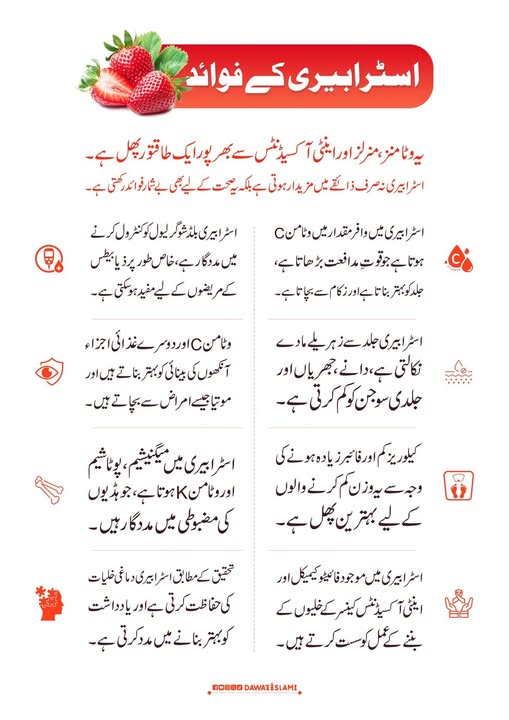 اسٹرابیری کے فوائد
یہ وٹامنز، منرلز اور اینٹی آکسیڈنٹس سے بھرپور ایک طاقتور پھل ہے۔
اسٹرابیری نہ صرف ذائقے میں مزیدار ہوتی ہے بلکہ یہ صحت کے لیے بھی بے شمار فوائد رکھتی ہے۔
اسٹرابیری میں وافر مقدار میں وٹامن C
ہوتا ہے جو قوتِ مدافعت بڑھاتا ہے،
جلد کو بہتر بناتا ہے اور زکام سے بچاتا ہے۔
C
اسٹرابیری بلڈ شوگر لیول کو کنٹرول کرنے
میں مددگار ہے، خاص طور پر ذیابیطس
کے مریضوں کے لیے مفید ہوسکتی ہے۔
اسٹرابیری جلد سے زہریلے مادے
نکالتی ہے، دانے، جھریاں اور
جلدی سوجن کو کم کرتی ہے۔
وٹامن C اور دوسرے غذائی اجزاء
آنکھوں کی بینائی کو بہتر بناتے ہیں اور
موتیا جیسے امراض سے بچاتے ہیں۔
کیلوریز کم اور فائبر زیادہ ہونے کی
وجہ سے یہ وزن کم کرنے والوں
کے لیے بہترین پھل ہے۔
اسٹرابیری میں میگنیشیم، پوٹاشیم
اور وٹامن K ہوتا ہے، جو ہڈیوں
کی مضبوطی میں مددگار ہیں۔
اسٹرابیری میں موجود فائیٹو کیمیکل اور
اینٹی آکسیڈنٹس کینسر کے خلیوں کے
بننے کے عمل کو سست کرتے ہیں۔
تحقیق کے مطابق اسٹرابیری دماغی خلیات
کی حفاظت کرتی ہے اور یادداشت
کو بہتر بنانے میں مدد کرتی ہے۔
DAWATEISLAMI